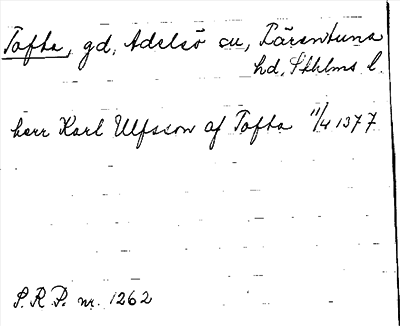 Tofta, gd, Adelsö sn, Färentuna
hd, Sthlms l.
herr Karl Ulfsson af Tofta 11/4 1377
S.R.P. nr. 1262